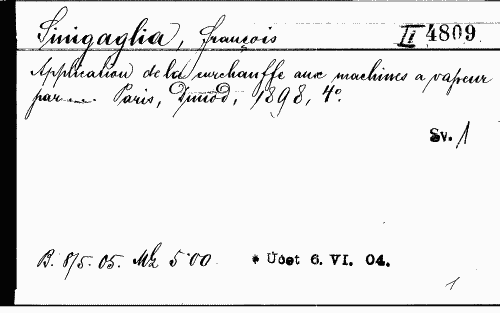 Sinigaglia, François II 4809
Application de la surchauffe aux machines a vapeur
par ... Paris, Dunod, 1898, 4°.
Sv. 1
B. 8/5. 05. Mk 5·00 * Účet 6. VI. 04.
1